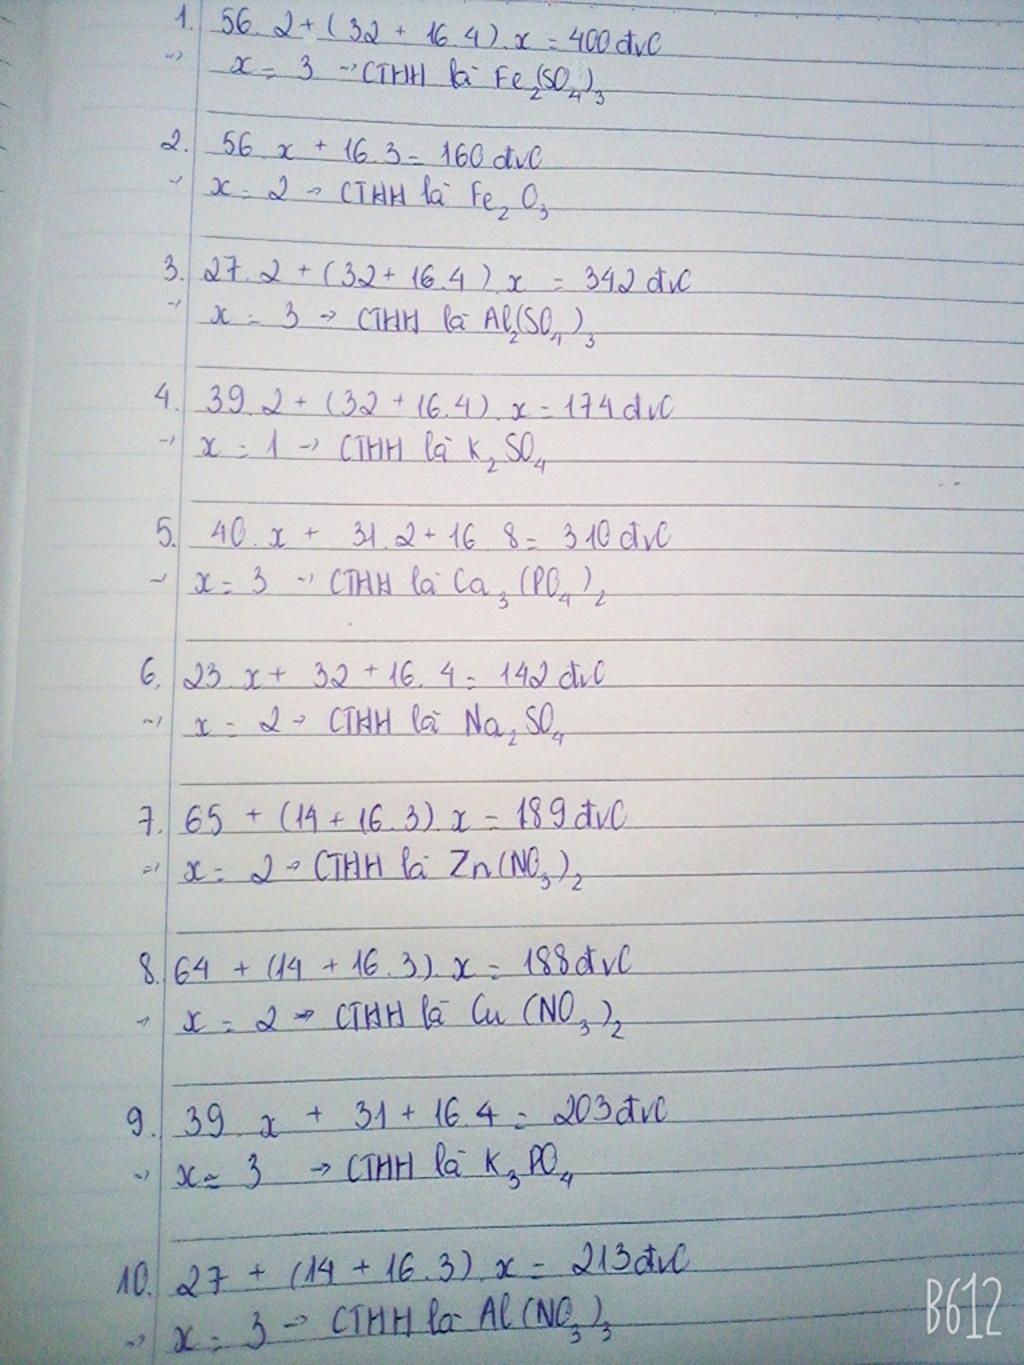 1. 56.2+(32+16.4).x=400đvC
-> x=3 -> CTHH là Fe₂(SO₄)₃
2. 56.x+16.3=160đvC
-> x=2 -> CTHH là Fe₂O₃
3. 27.2+(32+16.4).x=342đvC
-> x=3 -> CTHH là Al₂(SO₄)₃
4. 39.2+(32+16.4).x=174đvC
-> x=1 -> CTHH là K₂SO₄
5. 40.x+31.2+16.8=310đvC
-> x=3 -> CTHH là Ca₃(PO₄)₂
6. 23.x+32+16.4=142đvC
-> x=2 -> CTHH là Na₂SO₄
7. 65+(14+16.3).x=189đvC
=> x=2 -> CTHH là Zn(NO₃)₂
8. 64+(14+16.3).x=188đvC
-> x=2 -> CTHH là Cu(NO₃)₂
9. 39.x+31+16.4=203đvC
-> x=3 -> CTHH là K₃PO₄
10. 27+(14+16.3).x=213đvC
-> x=3 -> CTHH là Al(NO₃)₃
B612